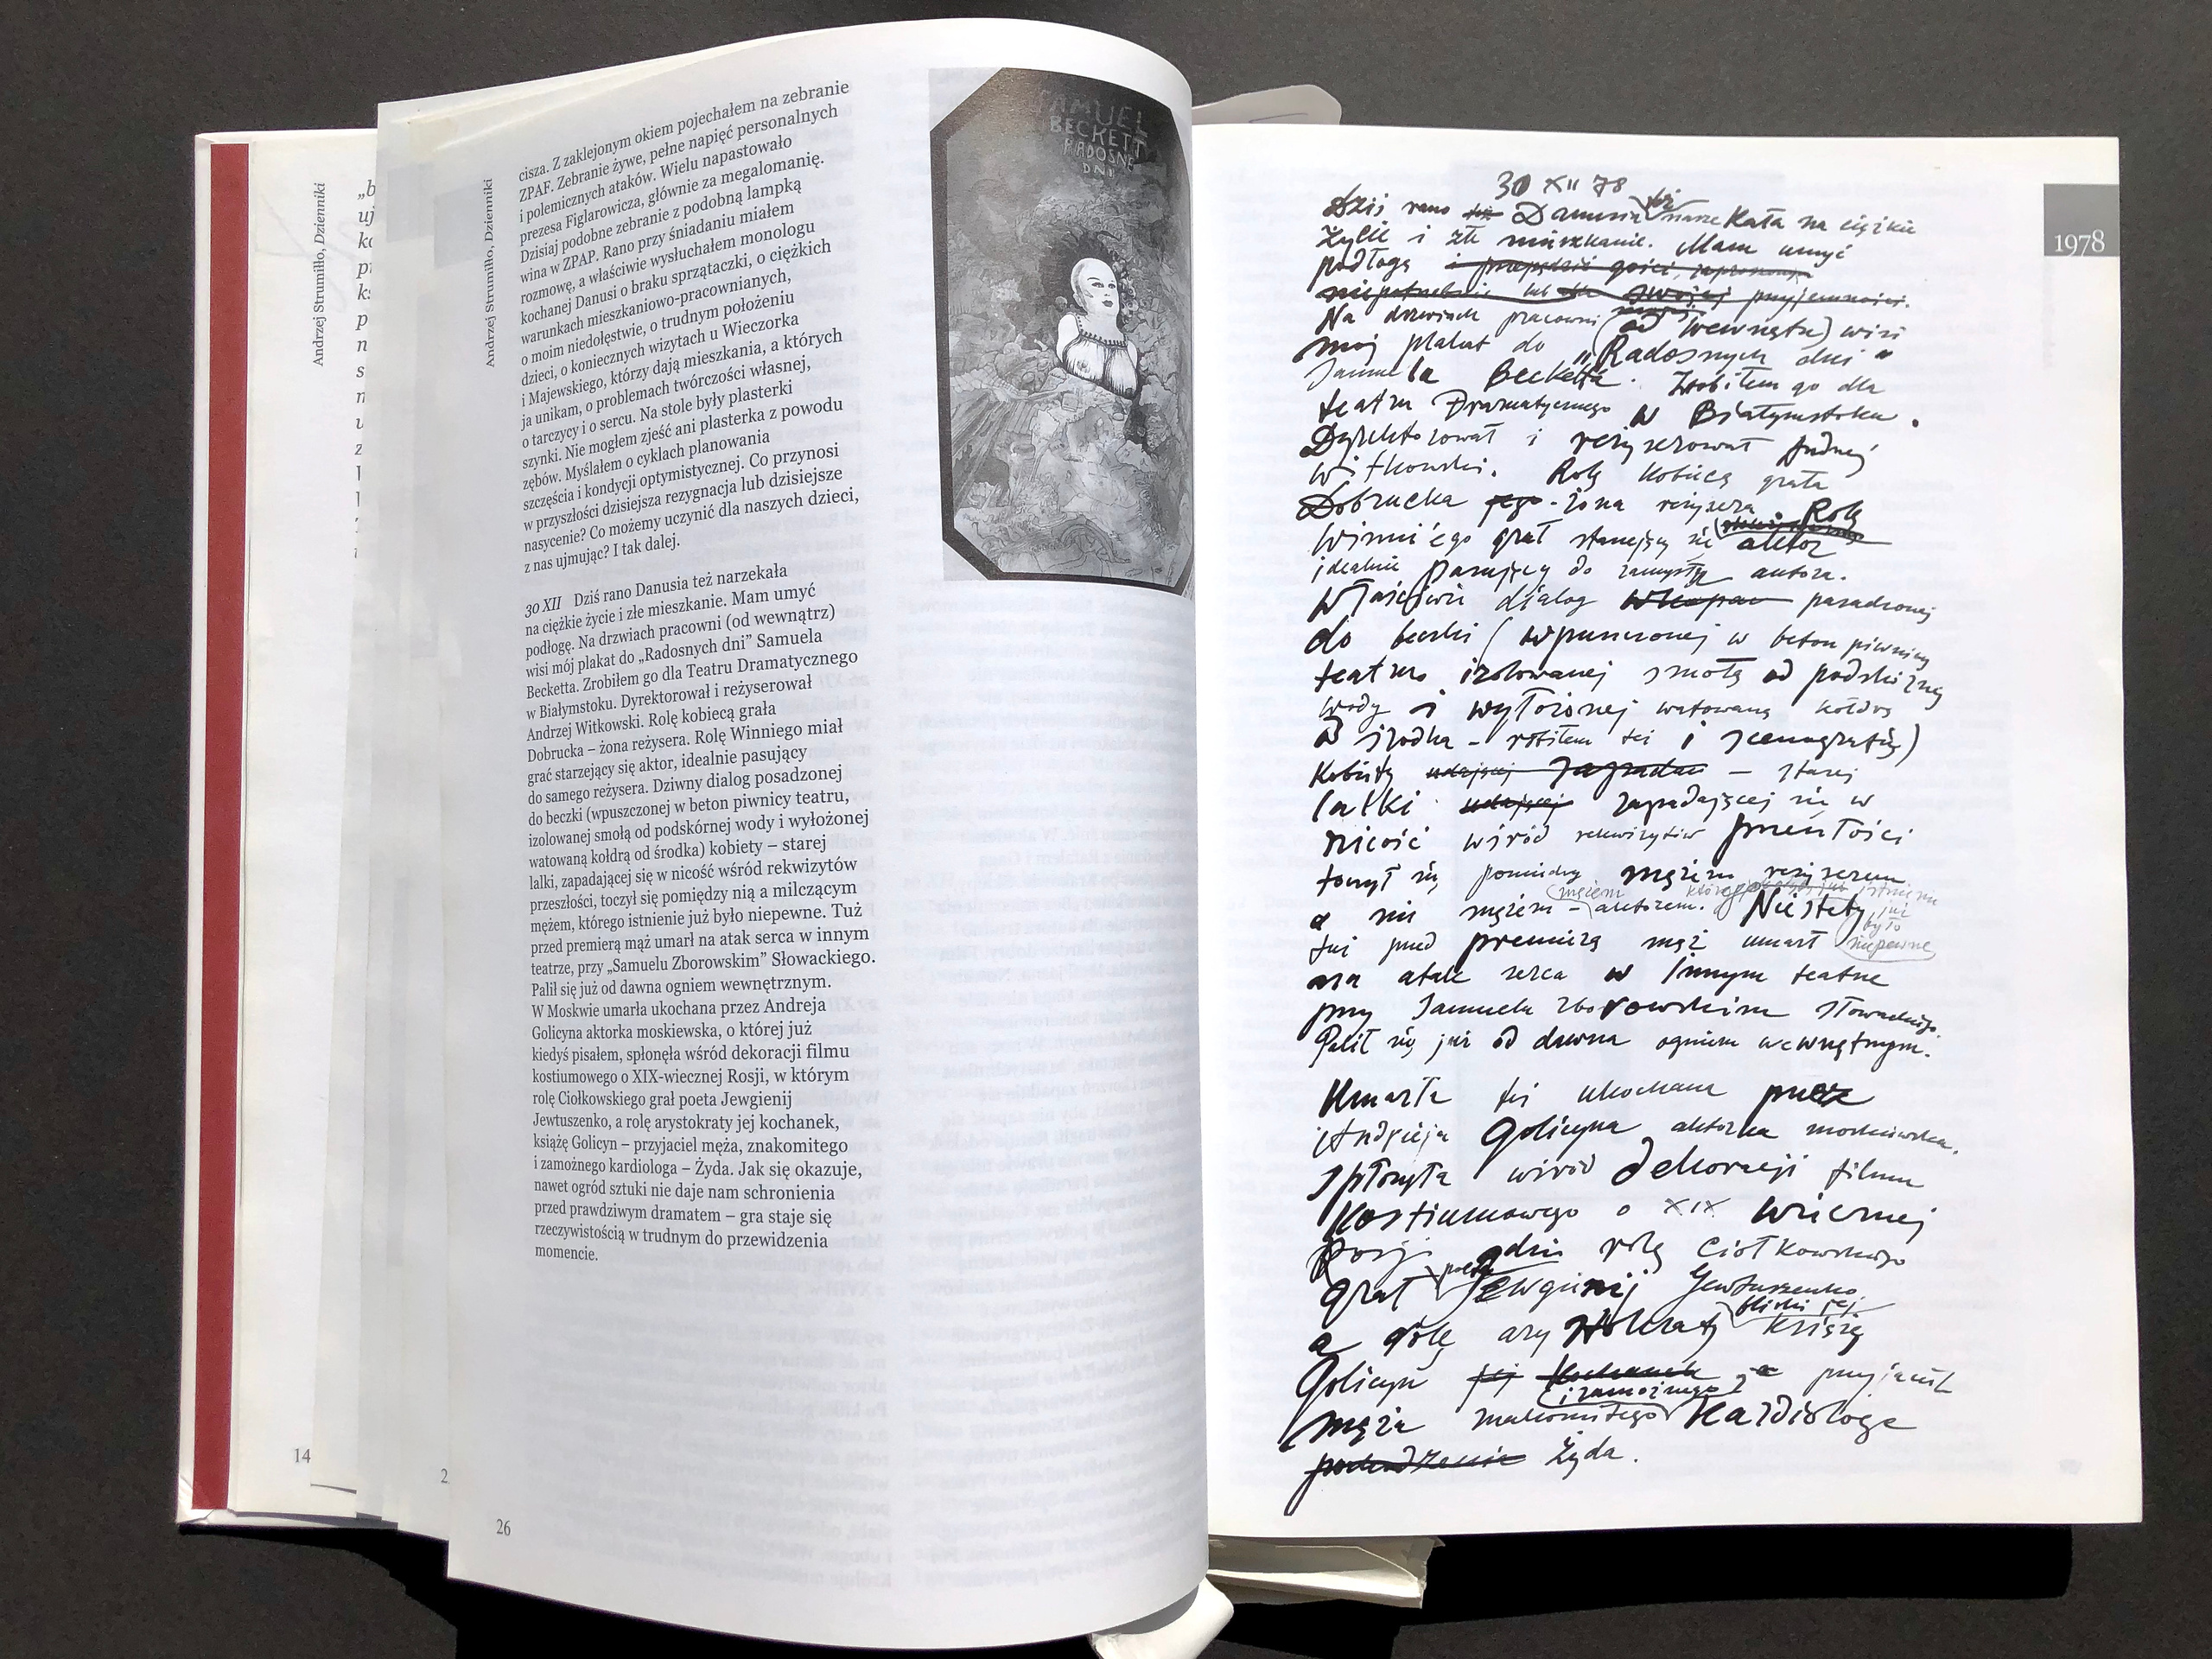 Andrzej Strumiłło, Dzienniki
„b
uj
k
p
k
p
n
s
n
u
z
14
2
Andrzej Strumiłło, Dzienniki
cisza. Z zaklejonym okiem pojechałem na zebranie
ZPAF. Zebranie żywe, pełne napięć personalnych
i polemicznych ataków. Wielu napastowało
prezesa Figlarowicza, głównie za megalomanię.
Dzisiaj podobne zebranie z podobną lampką
wina w ZPAP. Rano przy śniadaniu miałem
rozmowę, a właściwie wysłuchałem monologu
kochanej Danusi o braku sprzątaczki, o ciężkich
warunkach mieszkaniowo-pracownianych,
o moim niedołęstwie, o trudnym położeniu
dzieci, o koniecznych wizytach u Wieczorka
i Majewskiego, którzy dają mieszkania, a których
ja unikam, o problemach twórczości własnej,
o tarczycy i o sercu. Na stole były plasterki
szynki. Nie mogłem zjeść ani plasterka z powodu
zębów. Myślałem o cyklach planowania
szczęścia i kondycji optymistycznej. Co przynosi
w przyszłości dzisiejsza rezygnacja lub dzisiejsze
nasycenie? Co możemy uczynić dla naszych dzieci,
z nas ujmując? I tak dalej.
30 XII Dziś rano Danusia też narzekała
na ciężkie życie i złe mieszkanie. Mam umyć
podłogę. Na drzwiach pracowni (od wewnątrz)
wisi mój plakat do „Radosnych dni” Samuela
Becketta. Zrobiłem go dla Teatru Dramatycznego
w Białymstoku. Dyrektorował i reżyserował
Andrzej Witkowski. Rolę kobiecą grała
Dobrucka – żona reżysera. Rolę Winniego miał
grać starzejący się aktor, idealnie pasujący
do samego reżysera. Dziwny dialog posadzonej
do beczki (wpuszczonej w beton piwnicy teatru,
izolowanej smołą od podskórnej wody i wyłożonej
watowaną kołdrą od środka) kobiety – starej
lalki, zapadającej się w nicość wśród rekwizytów
przeszłości, toczył się pomiędzy nią a milczącym
mężem, którego istnienie już było niepewne. Tuż
przed premierą mąż umarł na atak serca w innym
teatrze, przy „Samuelu Zborowskim” Słowackiego.
Palił się już od dawna ogniem wewnętrznym.
W Moskwie umarła ukochana przez Andreja
Golicyna aktorka moskiewska, o której już
kiedyś pisałem, spłonęła wśród dekoracji filmu
kostiumowego o XIX-wiecznej Rosji, w którym
rolę Ciołkowskiego grał poeta Jewgienij
Jewtuszenko, a rolę arystokraty jej kochanek,
książę Golicyn – przyjaciel męża, znakomitego
i zamożnego kardiologa – Żyda. Jak się okazuje,
nawet ogród sztuki nie daje nam schronienia
przed prawdziwym dramatem – gra staje się
rzeczywistością w trudnym do przewidzenia
momencie.
26
SAMUEL
BECKETT
RADOSNE
DNI
1978
30 XII 78
Dziś rano Danusia też narzekała na ciężkie
życie i złe mieszkanie. Mam umyć
podłogę i przepędzić gości,
niepotrzebnie lub dla swojej przyjemności.
Na drzwiach pracowni (od wewnątrz) wisi
mój plakat do „Radosnych dni"
Samuela Becketta. Zrobiłem go dla
teatru Dramatycznego w Białymstoku.
Dyrektorował i reżyserował Andrzej
Witkowski. Rolę kobiecą grała
Dobrucka jego - żona reżysera. Rolę
Winni'ego grał starzejący się aktor
idealnie pasujący do zamysłu autora.
Właściwie dialog posadzonej
do beczki (wpuszczonej w beton piwnicy
teatru izolowanej smołą od podskórnej
wody i wyłożonej watowaną kołdrą
od środka - robiłem też i scenografię)
kobiety udającej - starej
lalki udającej zapadającej się w
nicość wśród rekwizytów przeszłości
toczył się pomiędzy mężem reżyserem
a nie mężem - aktorem. Niestety
mężem którego istnienie już było niepewne
tuż przed premierą mąż umarł
na atak serca w innym teatrze
przy Samuelu Zborowskim Słowackiego.
Palił się już od dawna ogniem wewnętrznym.
Umarła też ukochana przez
Andrieja Golicyna aktorka moskiewska.
spłonęła wśród dekoracji filmu
kostiumowego o XIX wiecznej
Rosji gdzie rolę Ciołkowskiego
grał poeta Jewgienij Jewtuszenko
a rolę arystokraty bliski jej książę
Golicyn jej kochanek a przyjaciel
męża znakomitego i zamożnego kardiologa
Żyda.